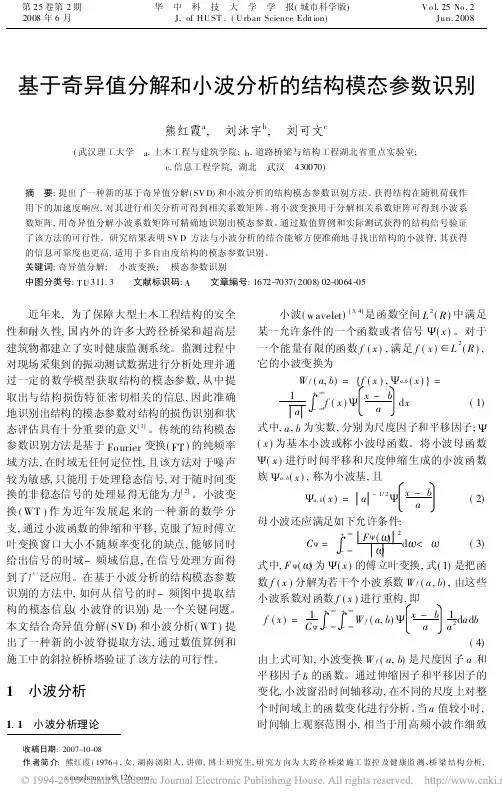 第25卷第2期 华中科技大学学报(城市科学版) Vol.25 No.2
2008年6月 J. of HUST. (Urban Science Edition) Jun.2008
基于奇异值分解和小波分析的结构模态参数识别
熊红霞a, 刘沐宇b, 刘可文c
(武汉理工大学 a.土木工程与建筑学院; b.道路桥梁与结构工程湖北省重点实验室;
c.信息工程学院, 湖北 武汉 430070)
摘 要: 提出了一种新的基于奇异值分解(SVD)和小波分析的结构模态参数识别方法。获得结构在随机荷载作
用下的加速度响应,对其进行相关分析可得到相关系数矩阵。将小波变换用于分解相关系数矩阵可得到小波系
数矩阵,用奇异值分解小波系数矩阵可精确地识别出模态参数。通过数值算例和实际测试获得的结构信号验证
了该方法的可行性。研究结果表明SVD方法与小波分析的结合能够方便准确地寻找出结构的小波脊,其获得
的信息可靠度也更高,适用于多自由度结构的模态参数识别。
关键词: 奇异值分解; 小波变换; 模态参数识别
中图分类号: TU311.3 文献标识码: A 文章编号: 1672-7037(2008)02-0064-05
近年来,为了保障大型土木工程结构的安全
性和耐久性,国内外的许多大跨径桥梁和超高层
建筑物都建立了实时健康监测系统。监测过程中
对现场采集到的振动测试数据进行分析处理并通
过一定的数学模型获取结构的模态参数,从中提
取出与结构损伤特征密切相关的信息,因此准确
地识别出结构的模态参数对结构的损伤识别和状
态评估具有十分重要的意义[1]。传统的结构模态
参数识别方法是基于Fourier变换(FT)的纯频率
域方法,在时域无任何定位性,且该方法对于噪声
较为敏感,只能用于处理稳态信号,对于随时间变
换的非稳态信号的处理显得无能为力[2]。小波变
换(WT)作为近年发展起来的一种新的数学分
支,通过小波函数的伸缩和平移,克服了短时傅立
叶变换窗口大小不随频率变化的缺点,能够同时
给出信号的时域-频域信息,在信号处理方面得
到了广泛应用。在基于小波分析的结构模态参数
识别的方法中,如何从信号的时-频图中提取结
构的模态信息(小波脊的识别)是一个关键问题。
本文结合奇异值分解(SVD)和小波分析(WT)提
出了一种新的小波脊提取方法,通过数值算例和
施工中的斜拉桥桥塔验证了该方法的可行性。
1 小波分析
1.1 小波分析理论
小波(wavelet)[3,4]是函数空间L2(R)中满足
某一允许条件的一个函数或者信号Ψ(x)。对于
一个能量有限的函数f(x),满足f(x)∈L2(R),
它的小波变换为
Wf(a,b) = {f(x),Ψa,b(x)} =
1/√|a| ∫ f(x)Ψ((x-b)/a)dx (1)
式中,a,b为实数,分别为尺度因子和平移因子;Ψ
(x)为基本小波或称小波母函数。将小波母函数
Ψ(x)进行时间平移和尺度伸缩生成的小波函数
族Ψa,b(x),称为小波基,且
Ψa,b(x) = |a|-1/2Ψ((x-b)/a) (2)
母小波还应满足如下允许条件:
CΨ = ∫ |FΨ(ω)|2/|ω| dω< ∞ (3)
式中,FΨ(ω)为Ψ(x)的傅立叶变换,式(1)是把函
数f(x)分解为若干个小波系数Wf(a,b),由这些
小波系数对函数f(x)进行重构,即
f(x) = 1/CΨ ∫∫ Wf(a,b)Ψ((x-b)/a) 1/a2 dadb
(4)
由上式可知,小波变换Wf(a,b)是尺度因子a和
平移因子b的函数。通过伸缩因子和平移因子的
变化,小波窗沿时间轴移动,在不同的尺度上对整
个时间域上的函数变化进行分析。当a值较小时,
时间轴上观察范围小,相当于用高频小波作细致
收稿日期: 2007-10-08
作者简介: 熊红霞(1976-),女,湖南浏阳人,讲师,博士研究生,研究方向为大跨径桥梁施工监控及健康监测、桥梁结构分析,
xionghongxia@126.com.
© 1994-2010 China Academic Journal Electronic Publishing House. All rights reserved. http://www.cnki.n